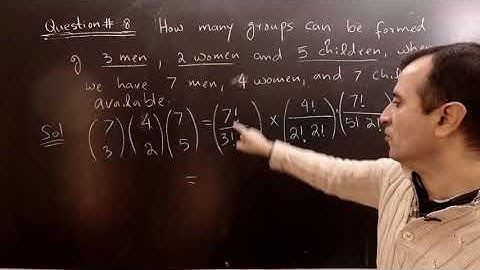 Question # 8 How many groups can be formed
of 3 men, 2 women and 5 children, whe
we have 7 men, 4 women, and 7 chil
available.
Sol (7 3) (4 2) (7 5) = (7! / 3!) × (4! / 2! 2!) (7! / 5! 2!
=